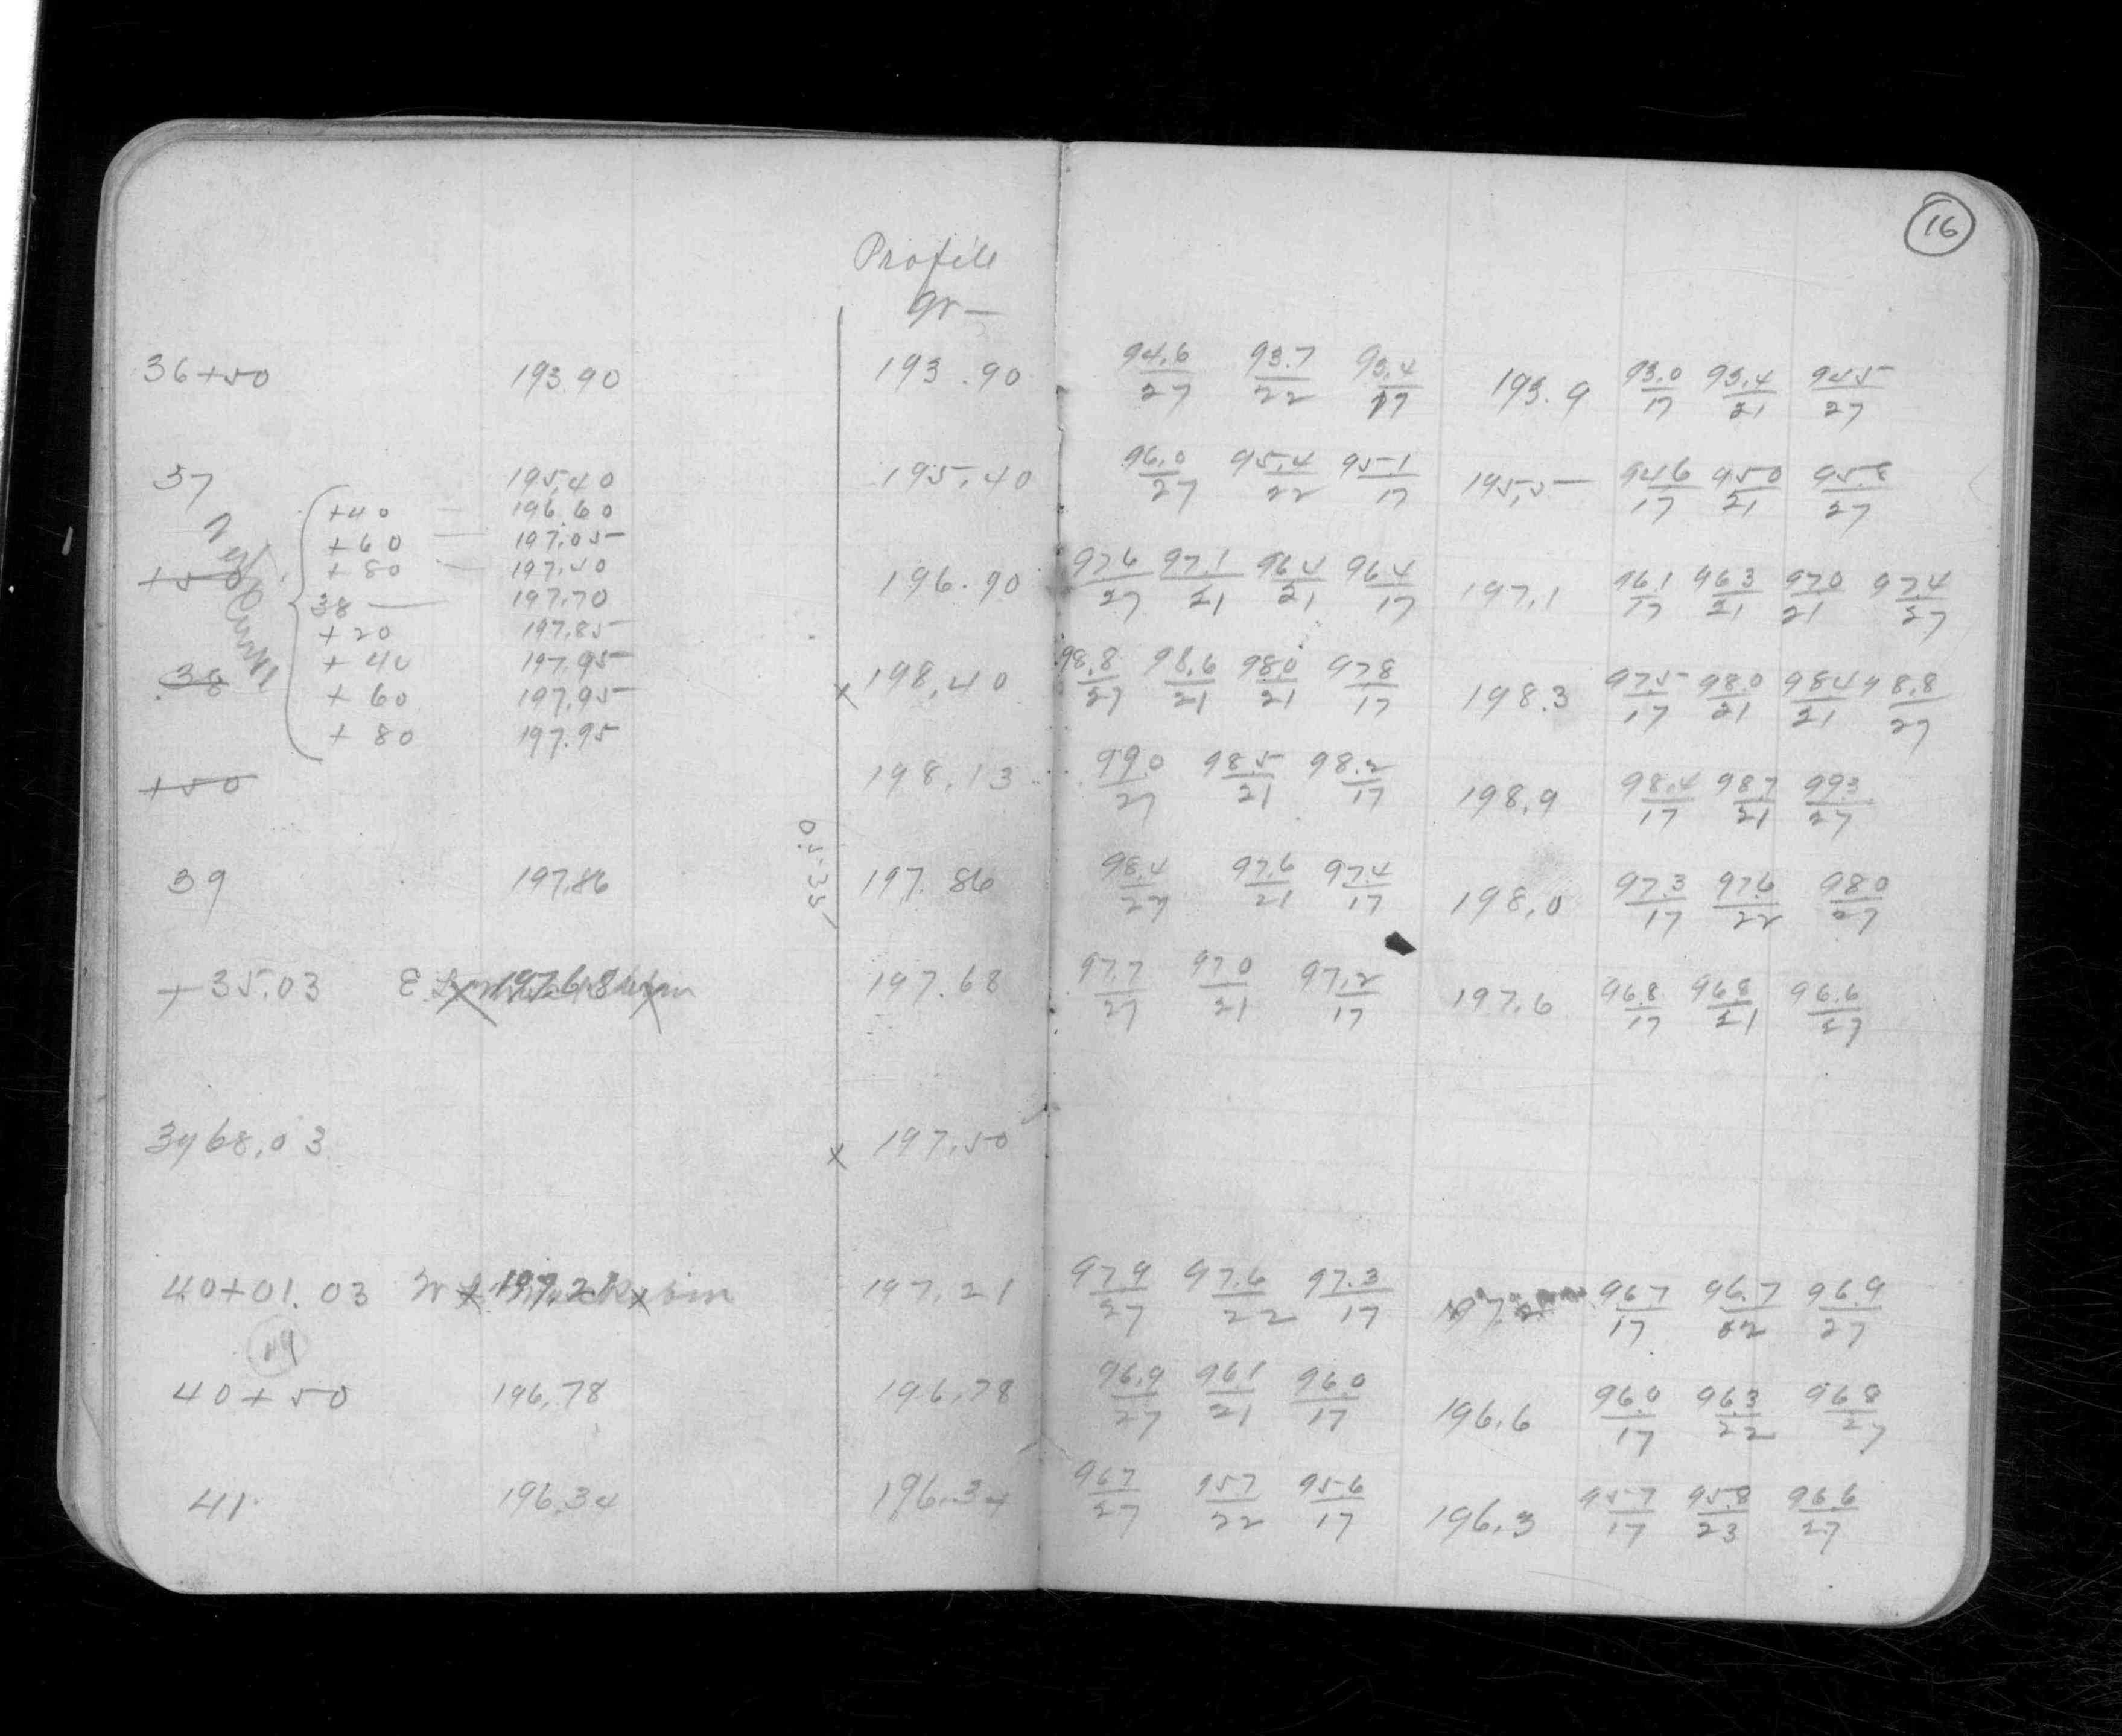 16
Profile
gr —
36+50 193.90 193.90 94.6/27 93.7/22 93.4/17 193.9 93.0/17 93.4/21 94.5/27
37 195.40 195.40 96.0/27 95.4/22 95.1/17 195.5 94.6/17 95.0/21 95.8/27
+40 — 196.60
+60 — 197.05
+50 196.90 97.6/27 97.1/21 96.4/21 96.4/17 197.1 96.1/17 96.3/21 97.0/21 97.4/27
+80 — 197.40
38 — 197.70
+20 197.85
+40 197.95
38 x 198.40 98.8/27 98.6/21 98.0/21 97.8/17 198.3 97.5/17 98.0/21 98.4/21 98.8/27
+60 197.95
+80 197.95
Vert Curve
+50 198.13 99.0/27 98.5/21 98.2/17 198.9 98.4/17 98.7/21 99.3/27
39 197.86 197.86 98.4/27 97.6/21 97.4/17 198.0 97.3/17 97.6/22 98.0/27
+35.03 E 197.68 197.68 97.7/27 97.0/21 97.2/17 197.6 96.8/17 96.8/21 96.6/27
3968.03 x 197.50
40+01.03 W 197.21 197.21 97.9/27 97.6/22 97.3/17 197.2 96.7/17 96.7/22 96.9/27
40+50 196.78 196.78 96.9/27 96.1/21 96.0/17 196.6 96.0/17 96.3/22 96.8/27
41 196.34 196.34 96.7/27 95.7/22 95.6/17 196.3 95.7/17 95.8/23 96.6/27